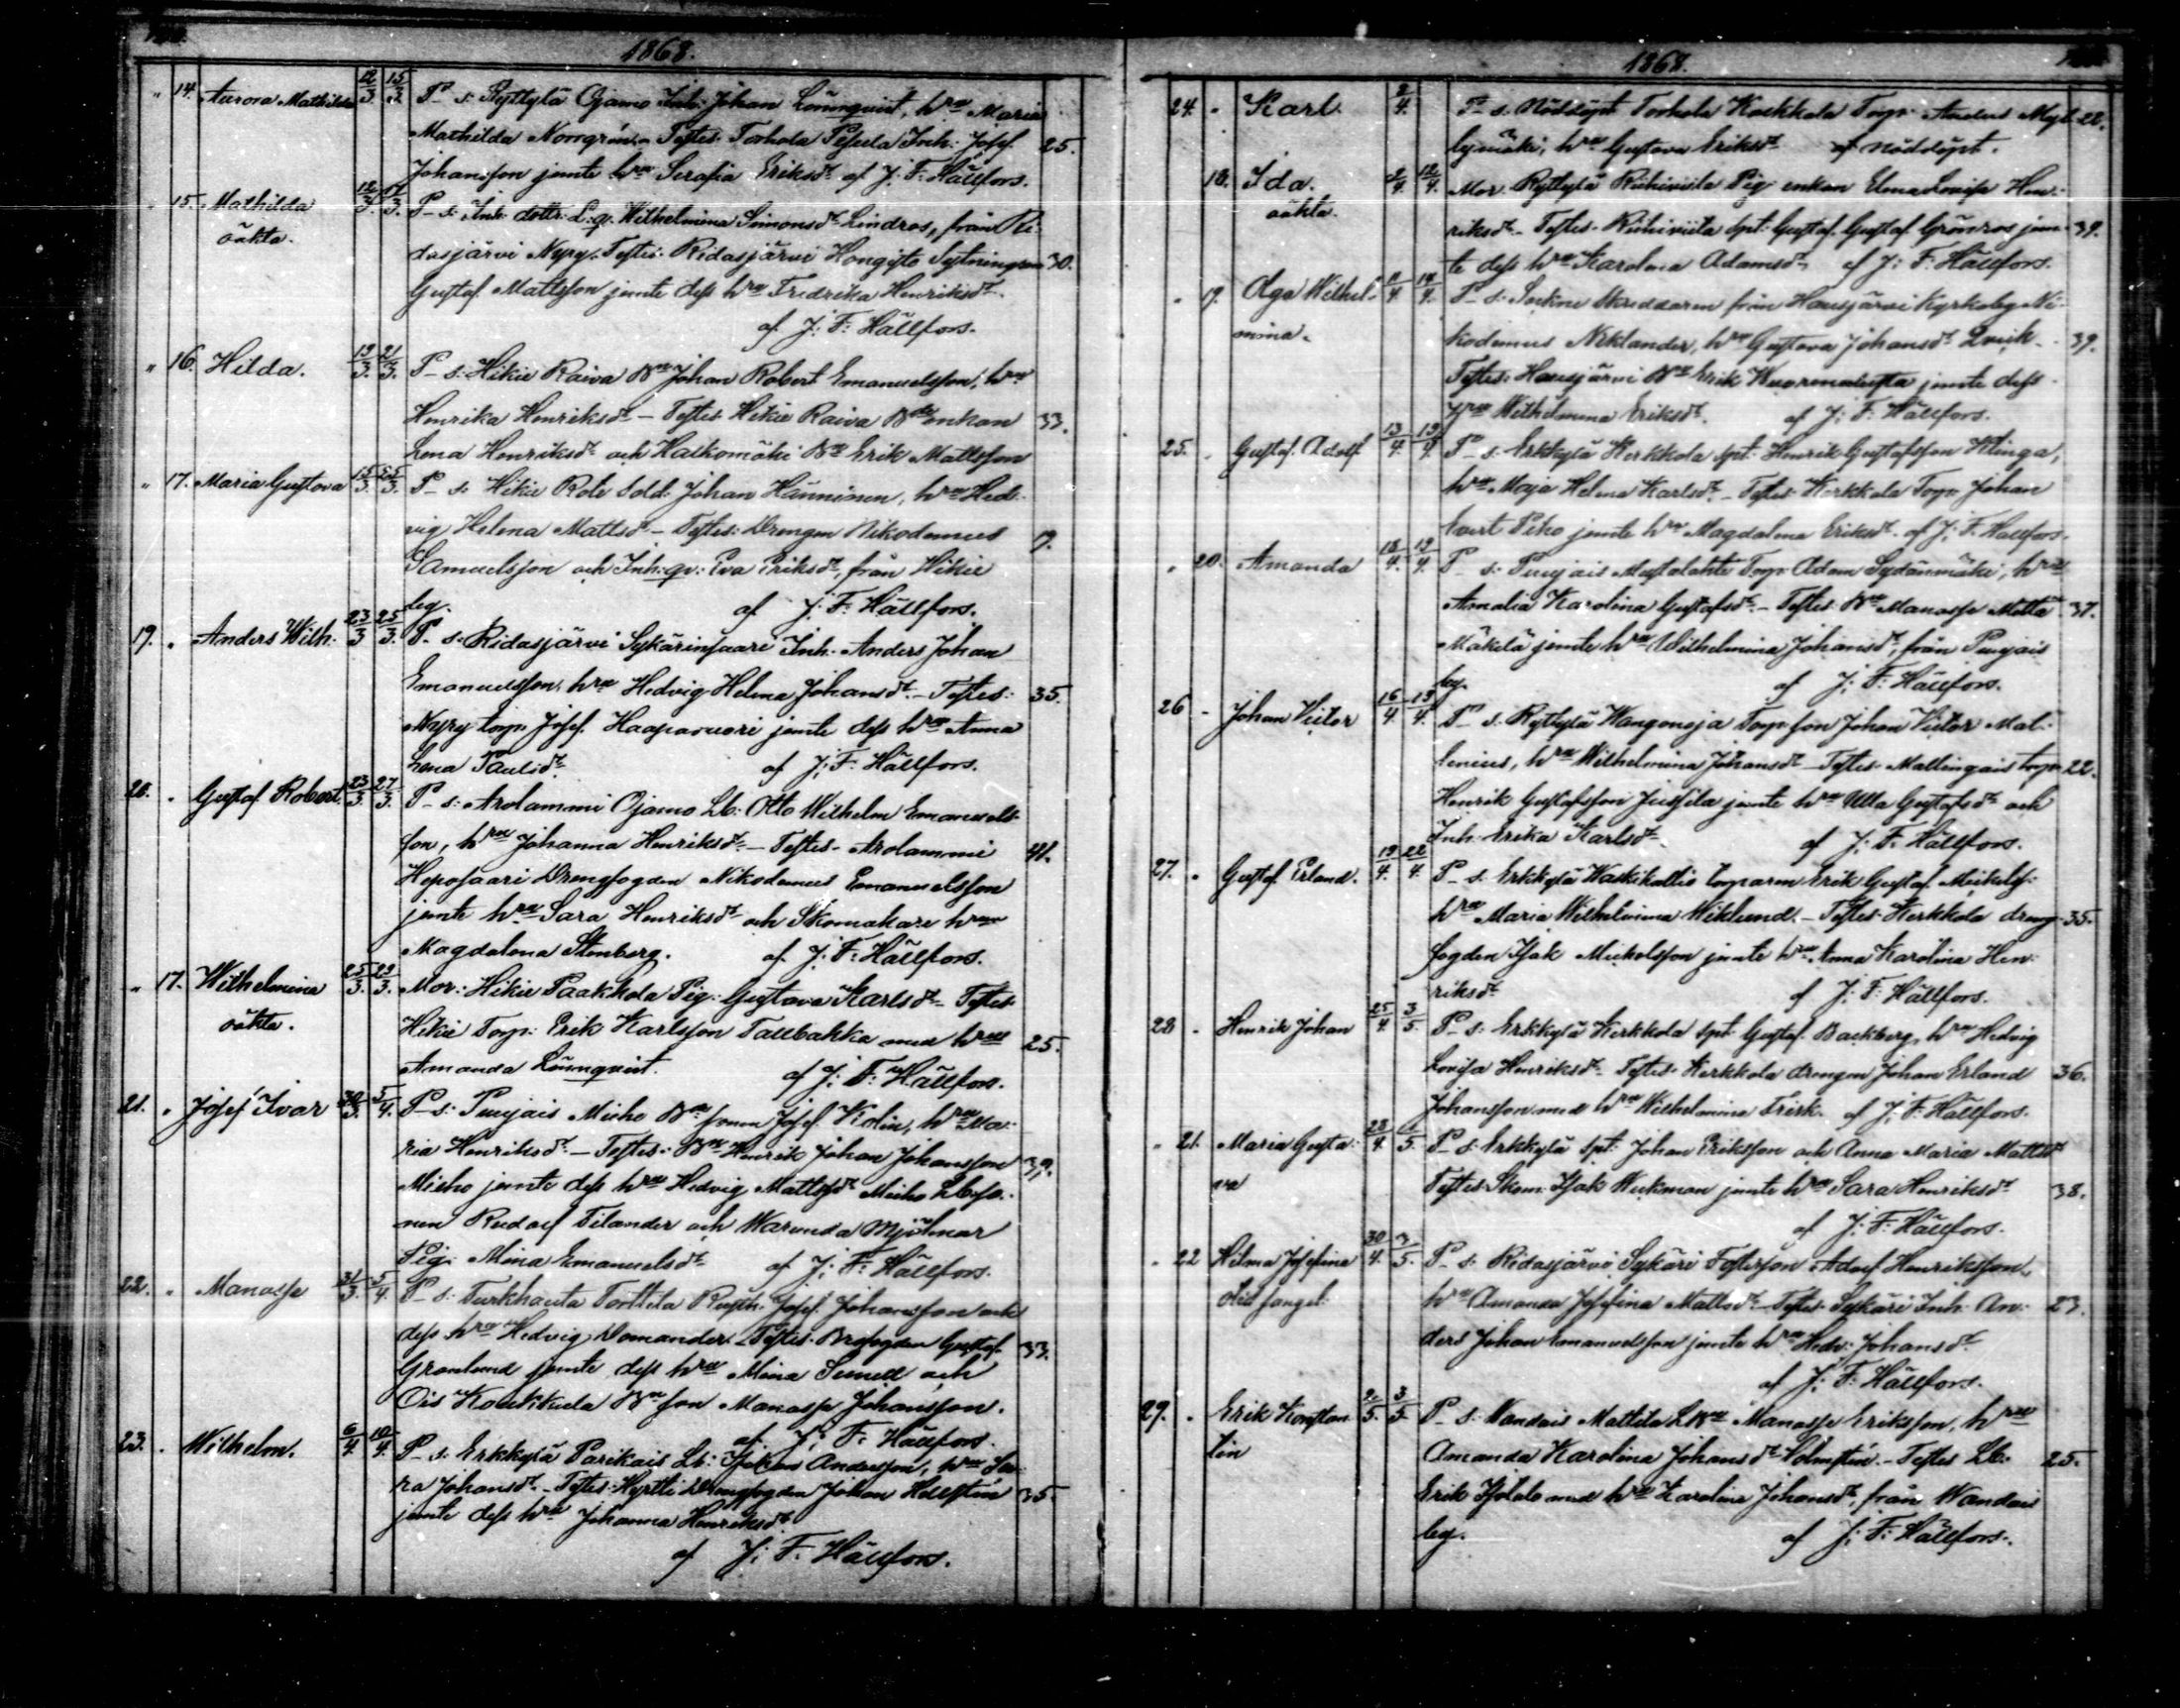 1868.
" 14. Aurora Mathilda 12/3 15/3. P. s. Ryttylä Ojamo Inh: Johan Lönnqvist, h:ru Maria
Mathilda Norrgrén. Testes. Torhola Inh: Josef 25.
Johansson jemte h:ru Serafia Eriksd:r af J: F: Hällfors.
" 15. Mathilda 12/3. 17/3. P. s: Inh: dottr: L:q: Wilhelmina Simonsd:r Lindros, från Ri-
oäkta.
dasjärvi Nyry. Testes: Ridasjärvi Hongisto Sytningsm 30.
Gustaf Mattsson jemte dess h:ru Fredrika Henriksd:r
af J: F: Hällfors.
" 16. Hilda. 19/3. 21/3. P. s: Hikie Raiva B:n Johan Robert Emanuelsson, h:ru
Henrika Henriksd:r — Testes Hikie Raiva B:de enkan 33.
Lena Henriksd:r och Halkomäki B:n Erik Mattsson
" 17. Maria Gustova 15/3. 25/3. P. s. Hikie Rote Sold: Johan Hänninen, h:ru Hed-
vig Helena Mattsd:r — Testes: Drengen Nikodemus
Samuelsson och Inh: qv: Eva Eriksd:r, från Hikie
by. af J: F: Hällfors.
19. " Anders Wilh. 23/3 25/3. P. s. Ridasjärvi Sykärinsaari Inh. Anders Johan
Emanuelsson, h:ru Hedvig Helena Johansd:r — Testes: 35.
Nyry torp. Josef Haapavuori jemte dess h:ru Anna
Lena Paulsd:r. af J: F: Hällfors.
20. " Gustaf Robert. 23/3. 27/3. P. s: Arolammi Ojamo Lb: Otto Wilhelm Emanuels-
son, h:ru Johanna Henriksd:r — Testes. Arolammi 41.
Heposaari Drengfogden Nikodemus Emanuelsson
jemte h:ru Sara Henriksd:r och Skomakare h:run
Magdalena Stenberg. af J: F: Hällfors.
" 17. Wilhelmina 25/3. 29/3. Mor: Hikie Paakkola Pig: Gustava Karlsd:r Testes
oäkta.
Hikie Torp: Erik Karlsson Tallbakka med h:ru 25.
Amanda Lönnqvist. af J: F: Hällfors.
21. " Josef Ivar 30/3. 5/4. P. s: Punjais Mieho B:n sonen Josef Kolin, h:ru Ma-
ria Henriksd:r. — Testes: B:n Henrik Johan Johansson 39.
Mieho jemte dess h:ru Hedvig Mattsd:r Mieho Lb
nen Rudolf Tilander och Warunda Mjölnar
Pig. Mina Emanuelsd:r af J: F: Hällfors.
22. " Manasse 31/3. 5/4. P. s: Turkhauta Torttila Rusth. Josef Johansson och
dess h:ru Hedvig Domander. Testes. Brofogden Gustaf 33.
Granlund jemte dess h:ru Mina Sunell och
Ois Koukkuela B:n son Manasse Johansson.
af J: F: Hällfors.
23. " Wilhelm. 6/4. 10/4. P. s: Erkkylä Parikais Lb: Andersson, h:ru Sa-
ra Johansd:r. — Testes: Hyrtti Drengfogden Johan Hellstén 35.
jemte dess h:ru Johanna Henriksd:r
af J: F: Hällfors.
1868.
24. " Karl. 2/4. P. s. Nöddöpt Torhola Koukkola Torp. Anders Myl- 22.
lymäki, h:ru Gustava Eriksd:r af nöddöpt.
18. Ida. 9/4. 12/4. Mor. Ryttylä Riihiviita Pig enkan Elma Lovisa Hen-
oäkta.
riksd:r. Testes. Riihiviita spt: Gustaf Gustaf Grönros jem- 39.
te dess h:ru Karolina Adamsd:r. af J: F: Hällfors.
" 19. Olga Wilhel- 11/4. 14/4. P. s: Sockne Skreddaren från Hausjärvi Kyrkoby Ni-
mina.
kodemus Niklander, h:ru Gustava Johansd:r Lvuk. 39.
Testes: Hausjärvi B:n Erik Wuorenalusta jemte dess
h:ru Wilhelmina Eriksd:r. af J: F: Hällfors.
25. " Gustaf Adolf 13/4. 19/4. P. s. Erkkylä Kerkkola spt. Henrik Gustafsson Klinga,
h:ru Maja Helena Karlsd:r. — Testes. Kerkkola Torp: Johan
Evert Peko jemte h:ru Magdalena Eriksd:r. af J: F: Hällfors.
" 20. Amanda 18/4. 19/4. P. s: Punjais Mustalahti Torp. Adam Sydänmäki, h:ru
Amalia Karolina Gustafsd:r. — Testes B:n Manasse Matta- 37.
Mäkelä jemte h:ru Wilhelmina Johansd:r, från Punjais
by. af J: F: Hällfors.
26 " Johan Victor 16/4. 19/4. P. s. Ryttylä Wangonoja Torp son Johan Victor Mal-
lenius, h:ru Wilhelmina Johansd:r — Testes. Mallingais torp. 22.
Henrik Gustafsson Jussila jemte h:ru Ulla Gustafsd:r och
Inh. Erika Karlsd:r af J: F: Hällfors.
27. " Gustaf Erland. 19/4. 22/4. P. s. Erkkylä Waskikallio Torparen Erik Gustaf Mickelss:
h:ru Maria Wilhelmina Wiklund. — Testes. Kerkkola dreng- 35.
fogden Isak Mickelsson jemte h:ru Anna Karolina Hen-
riksd:r af J: F: Hällfors.
28 " Henrik Johan 25/4. 3/5. P. s: Erkkylä Kerkkola spt. Gustaf Backberg, h:ru Hedvig
Lovisa Henriksd:r. Testes. Kerkkola drengen Johan Erland 36.
Johansson med h:ru Wilhelmina Frisk. af J: F: Hällfors.
" 21. Maria Gusta- 28/4. /5. P. s. Erkkylä spt. Johan Eriksson och Anna Maria Mattsd:r
va
Testes. Skom: Isak Wickman jemte h:ru Sara Henriksd:r 38.
af J: F: Hällfors.
" 22 Hilma Josefina 30/4. 3/5. P. s. Ridasjärvi Sykäri Fosterson Adolf Henriksson,
h:ru Amanda Josefina Mattsd:r — Testes. Sykäri Inh. An- 23.
ders Johan Emanuelsson jemte h:ru Hedv: Johansd:r.
af J: F: Hällfors.
29. " Erik Konstan- 2/5. 3/5. P. s: Vandais Mattila L.B:n Manasse Eriksson, h:ru
tin
Amanda Karolina Johansd:r Holmstén. — Testes Lb: 25.
Erik Isotalo med h:ru Karolina Johansd:r, från Wandais
by. af J: F: Hällfors.